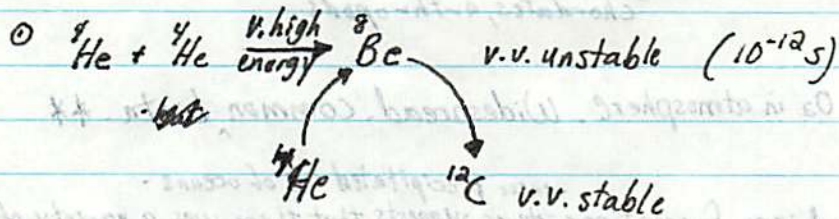 ① ⁴He + ⁴He v.high energy → ⁸Be v.v. unstable (10⁻¹²s)
⁴He ¹²C v.v. stable